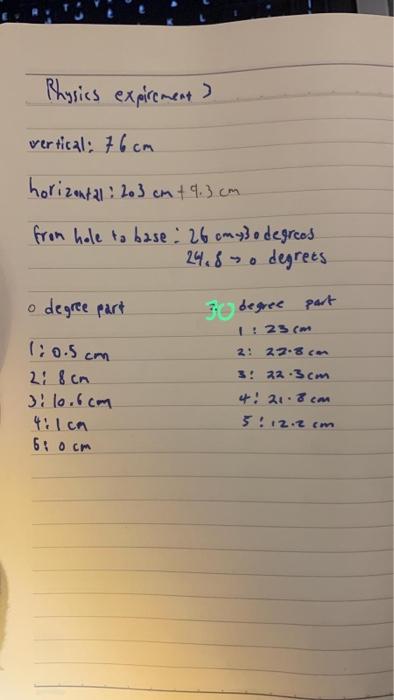 Physics expirement )
vertical: 76 cm
horizontal: 203 cm + 9.3 cm
from hole to base: 26 cm → 30 degrees
24.8 → 0 degrees
0 degree part
1: 0.5 cm
2: 8 cm
3: 10.6 cm
4: 1 cm
5: 0 cm
30 degree part
1: 23 cm
2: 22.8 cm
3: 22.3 cm
4: 21.8 cm
5: 12.2 cm